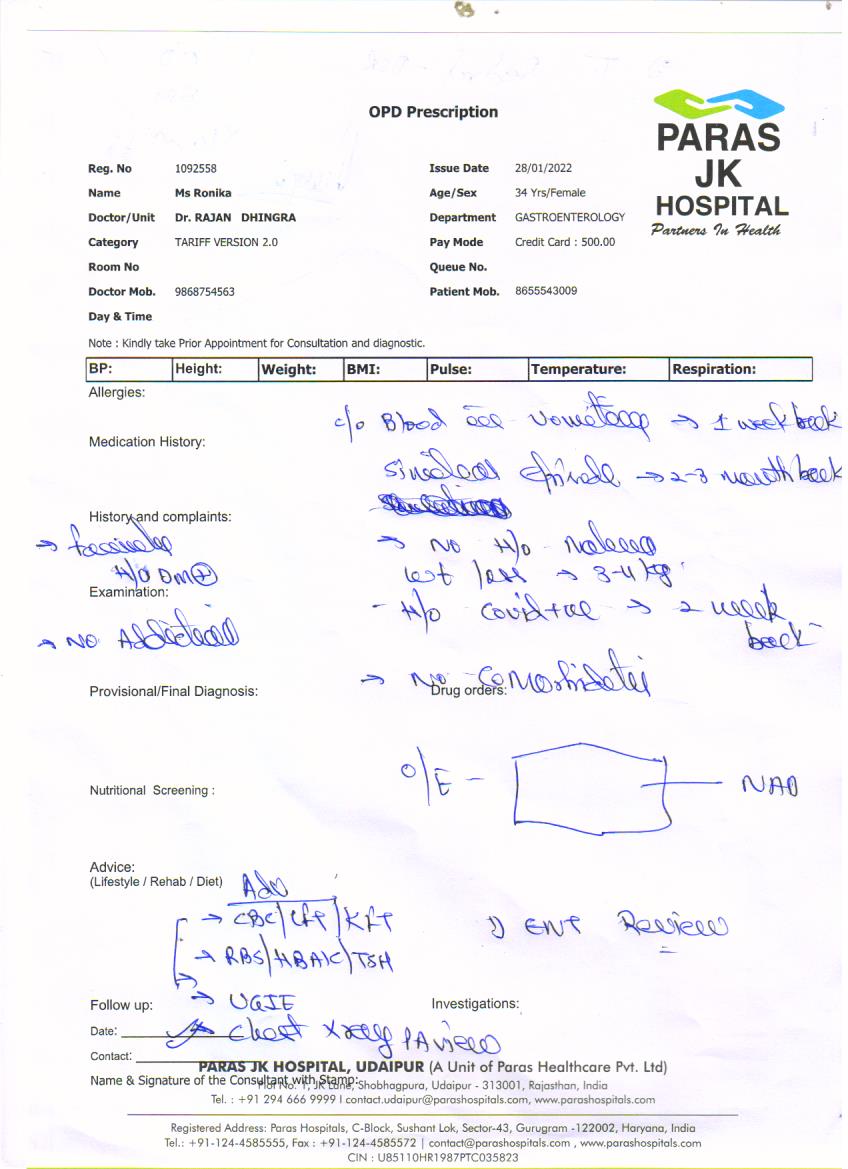 OPD Prescription
PARAS
JK
HOSPITAL
Partners In Health
Reg. No 1092558 Issue Date 28/01/2022
Name Ms Ronika Age/Sex 34 Yrs/Female
Doctor/Unit Dr. RAJAN DHINGRA Department GASTROENTEROLOGY
Category TARIFF VERSION 2.0 Pay Mode Credit Card : 500.00
Room No Queue No.
Doctor Mob. 9868754563 Patient Mob. 8655543009
Day & Time
Note : Kindly take Prior Appointment for Consultation and diagnostic.
BP: Height: Weight: BMI: Pulse: Temperature: Respiration:
Allergies:
c/o Blood vomiting → 1 week back
Medication History:
→ 2-3 month back
History and complaints:
→ NO H/o Malena
H/O DM+
wt loss → 3-4 kg
Examination:
- H/o Covid +ve → 2 week
back
→ NO Addiction
→ No Comorbidities
Provisional/Final Diagnosis: Drug orders:
O/E - NAD
Nutritional Screening :
Advice:
(Lifestyle / Rehab / Diet) Adv
→ CBC/LFT/KFT
1) ENT Review
→ RBS/HBA1C/TSH
→ UGIE
Follow up: Investigations:
→ Chest Xray PA view
Date:
Contact:
PARAS JK HOSPITAL, UDAIPUR (A Unit of Paras Healthcare Pvt. Ltd)
Name & Signature of the Consultant with Stamp:
Plot No. 1, JK Lane, Shobhagpura, Udaipur - 313001, Rajasthan, India
Tel. : +91 294 666 9999 I contact.udaipur@parashospitals.com, www.parashospitals.com
Registered Address: Paras Hospitals, C-Block, Sushant Lok, Sector-43, Gurugram -122002, Haryana, India
Tel.: +91-124-4585555, Fax : +91-124-4585572 | contact@parashospitals.com , www.parashospitals.com
CIN : U85110HR1987PTC035823